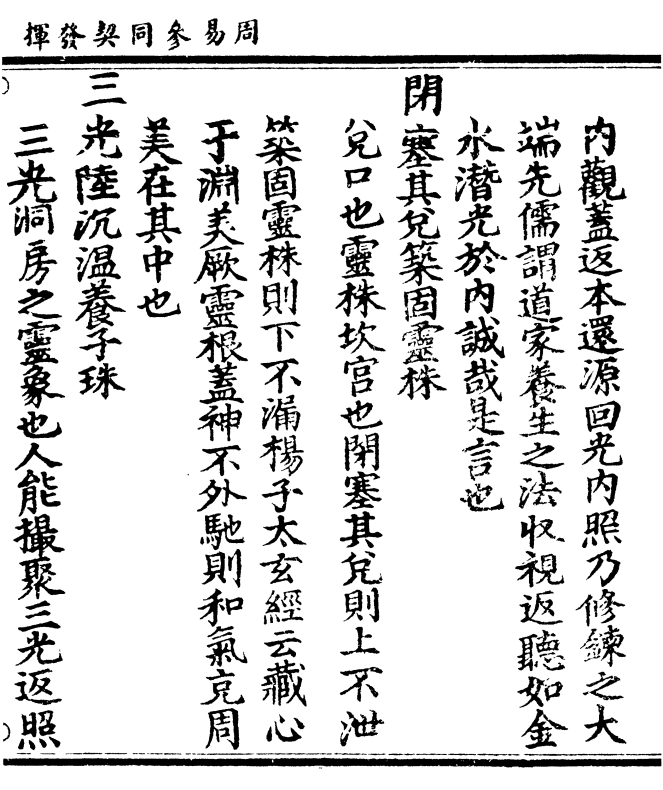 周易參同契發揮
內觀蓋返本還源回光内照乃修鍊之大
端先儒謂道家養生之法収視返聽如金
水潛光於内誠哉是言也
閉塞其兌築固靈株
兌口也靈株坎宫也閉塞其兌則上不泄
築固靈株則下不漏楊子太玄經云藏心
于淵美厥靈根蓋神不外馳則和氣克周
美在其中也
三光陸沉温養子珠
三光洞房之靈象也人能撮聚三光返照